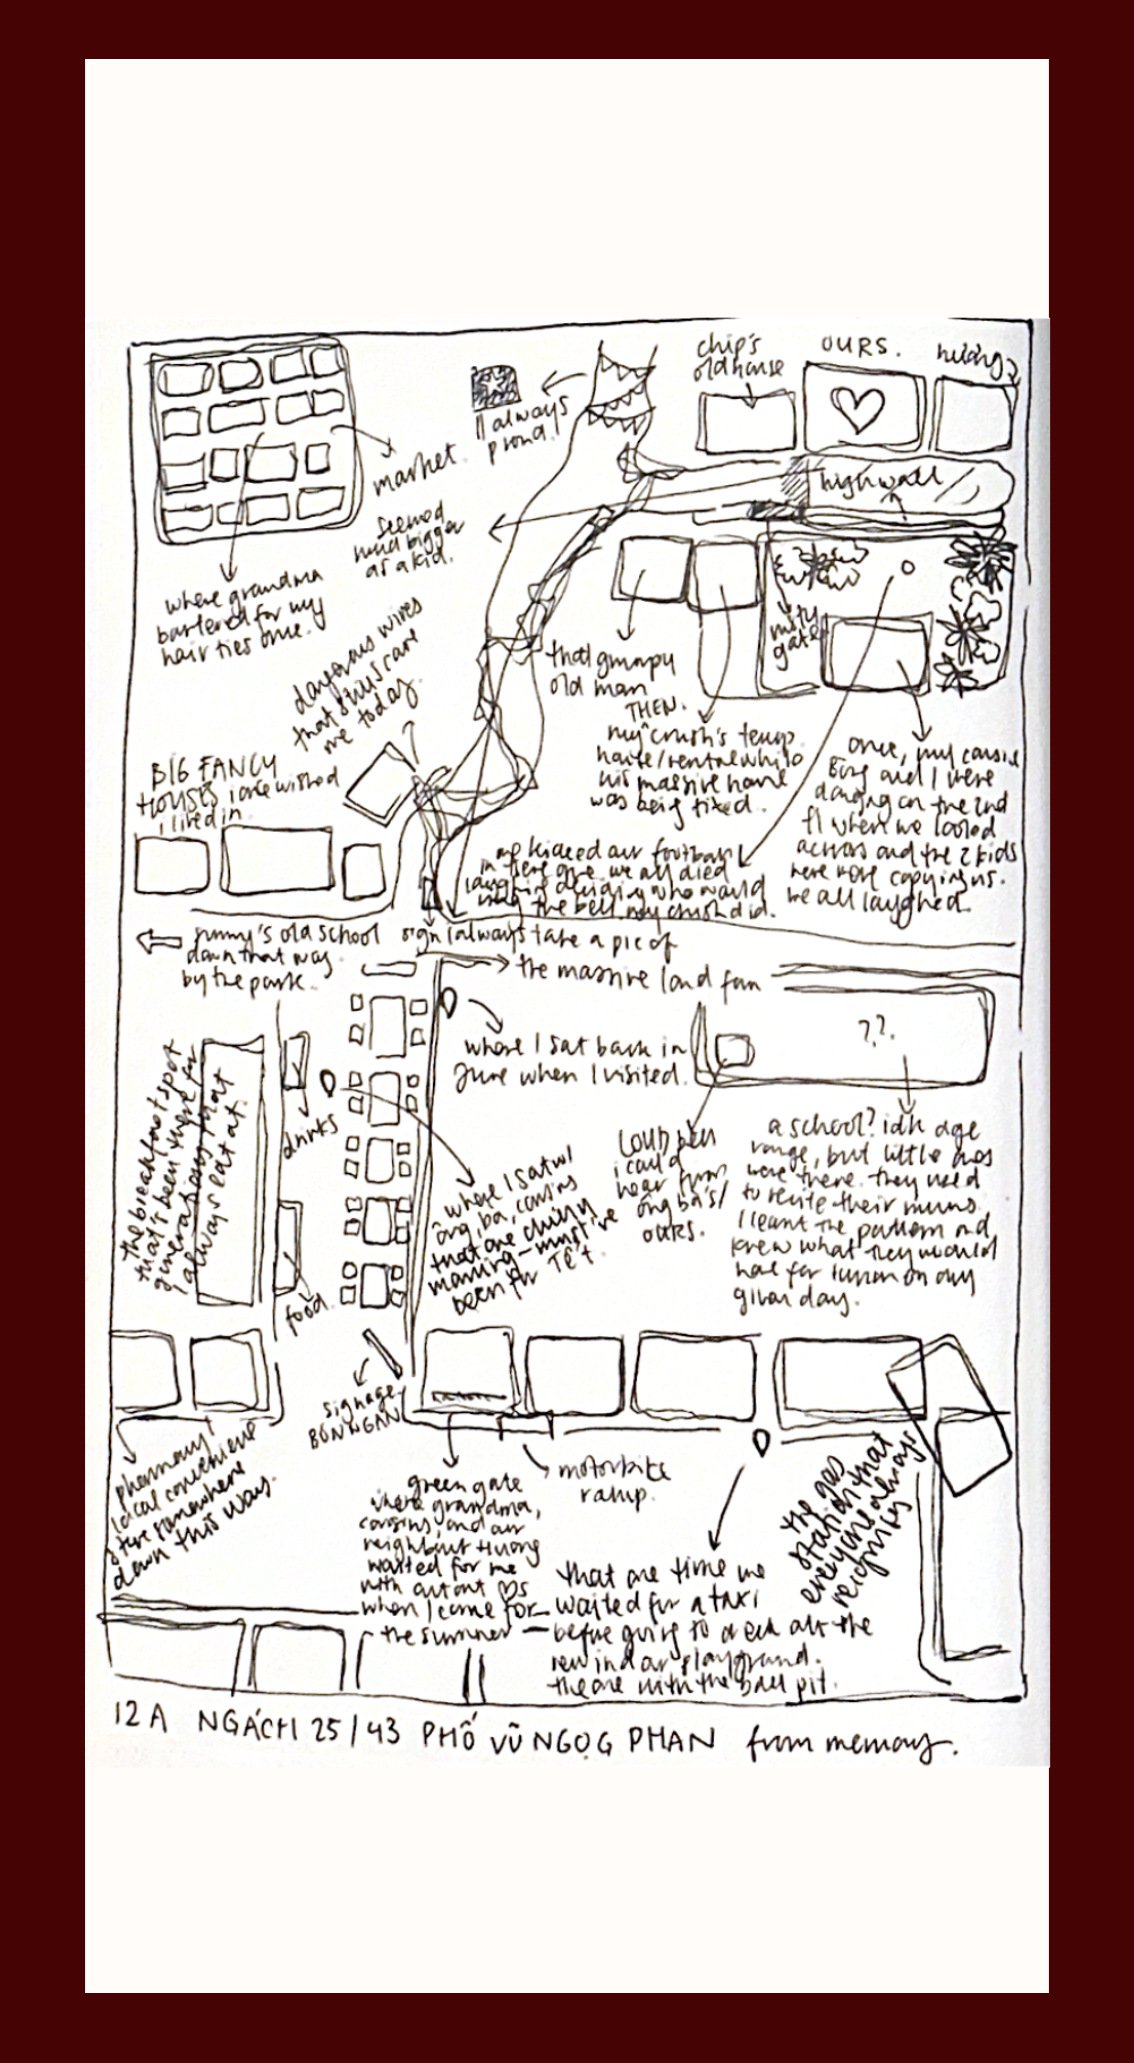 chip's
old house
OURS.
high wall
market.
always
proud!
seemed
much bigger
as a kid.
where grandma
bartered for my
hair ties once.
dangerous wires
that still scare
me today.
BIG FANCY
HOUSES i once wished
i lived in.
that grumpy
old man
THEN.
my crush's temp.
home/rental while
his massive home
was being fixed.
rusty
gate
once, my cousin
and I were
dancing on the 2nd
fl when we looked
across and the 2 kids
were copying us.
we all laughed.
we kicked our football
in here once. we all died
laughing deciding who would
ring the bell. my crush did.
old school
down that way.
by the park.
sign I always take a pic of
the massive land
where I sat back in
June when I visited.
??.
the breakfast spot
that's been there for
generations that
I always eat at.
drinks
food.
where I sat w/
ông, bà, cousins
that one chilly
morning – must've
been for TẾT.
LOUD bell
i could
hear from
ông bà's/
OURS.
a school? idk age
range, but little ones
were there. they used
to recite their menus.
I learnt the pattern and
knew what they would
have for lunch on any
given day.
signage
BÚN NGAN
pharmacy/
local convenience
store somewhere
down this way.
green gate
where grandma,
cousins, and our
neighbour Hương
waited for me
with out ♡s
when I come for
the summer
motorbike
ramp.
that one time we
waited for a taxi
before going to check out the
new indoor playground.
the one with the ball pit.
the gas
station that
everyone always
recognizes
12A NGÁCH 25/43 PHỐ VŨ NGỌC PHAN from memory.